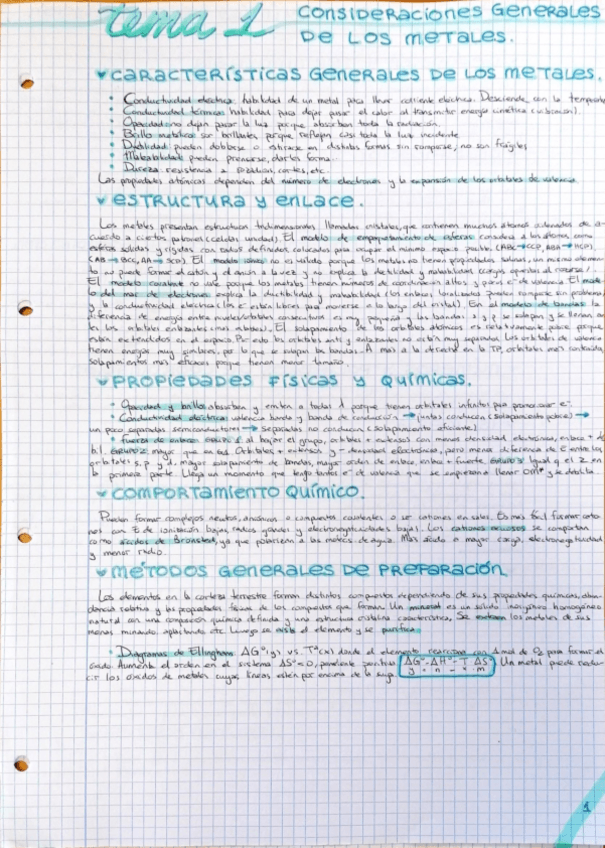 tema 1 Consideraciones Generales
De Los Metales.
Características Generales De Los Metales.
• Conductividad eléctrica: habilidad de un metal para llevar corriente eléctrica. Desciende con la temperatura
• Conductividad térmica: habilidad para dejar pasar el calor al transmitir energía cinética (vibración).
• Opacidad: no dejan pasar la luz porque absorben toda la radiación.
• Brillo metálico: son brillantes porque reflejan casi toda la luz incidente
• Ductilidad: pueden doblarse o estirarse en distintas formas sin romperse, no son frágiles
• Maleabilidad: pueden prensarse, darles forma.
• Dureza: resistencia a cortes, etc.
Las propiedades atómicas dependen del número de electrones y la expansión de los orbitales de valencia.
Estructura y Enlace.
Los metales presentan estructuras tridimensionales llamadas cristales, que contienen muchos átomos ordenados de a-
cuerdo a ciertos patrones (celdas unidad). El modelo de empaquetamiento de esferas considera a los átomos como
esferas sólidas y rígidas con radios definidos, colocadas para ocupar el mínimo espacio posible. (ABC→CCP, ABA→HCP),
(AB→BCC, AA→SCP). El modelo iónico no es válido porque los metales no tienen propiedades salinas, un mismo elemen-
to no puede formar el catión y el anión a la vez y no explica la ductilidad y maleabilidad
El modelo covalente no vale porque los metales tienen números de coordinación altos y pocos e⁻ de valencia. El mode-
lo del mar de electrones explica la ductilidad y maleabilidad
y la conductividad eléctrica (los e⁻ están libres para moverse a lo largo del metal). En el modelo de bandas la
diferencia de energía entre niveles/orbitales consecutivos es muy pequeña y las bandas s y p se solapan y se llenan
los orbitales enlazantes. El solapamiento de los orbitales atómicos es relativamente pobre porque
están extendidos en el espacio. Por eso los orbitales anti y enlazantes no están muy separados. Los orbitales de valencia
tienen energías muy similares, por lo que se solapan las bandas. A más a la derecha en la TP, orbitales más contraídos,
solapamientos más eficaces porque tienen menor tamaño.
Propiedades Físicas y Químicas.
• Opacidad y brillo: absorben y emiten a todas λ porque tienen orbitales infinitos para promocionar e⁻.
• Conductividad eléctrica: valencia banda y banda de conducción → juntas conducen (solapamiento pobre) →
un poco separadas semiconductores → separadas no conducen (solapamiento eficiente)
• Fuerza de enlace: al bajar el grupo, orbitales + extensos con menos densidad electrónica, enlace + débil
orbitales s, p y d, mayor solapamiento de bandas, mayor orden de enlace, enlace + fuerte.
la primera parte. Llega un momento que tengo tantos e⁻ de valencia que se empiezan a llenar OM* y se debilita.
Comportamiento Químico.
Pueden formar complejos neutros, aniónicos o compuestos covalentes o ser cationes en sales. Es más fácil formar catio-
nes con E de ionización bajas, radios grandes y electronegatividades bajas. Los cationes acuosos se comportan
como ácidos de Bronsted, ya que polarizan a las moléculas de agua. Más ácido a mayor carga, electronegatividad
y menor radio.
Métodos Generales De Preparación
Los elementos en la corteza terrestre forman distintos compuestos dependiendo de sus propiedades químicas, abun-
dancia relativa y las propiedades físicas de los compuestos que forman. Un mineral es un sólido inorgánico homogéneo
natural con una composición química definida y una estructura cristalina característica. Se extraen los metales de sus
menas minando, aplastando etc. Luego se aísla el elemento y se purifica.
• Diagramas de Ellingham: ΔG°(y) vs. T°(x) donde el elemento reacciona con 1 mol de O₂ para formar el
óxido. Aumenta el orden en el sistema ΔS°<0, pendiente positiva ΔG°=ΔH°-TΔS° Un metal puede redu-
y = n - x m
cir los óxidos de metales cuyas líneas estén por encima de la suya.
1